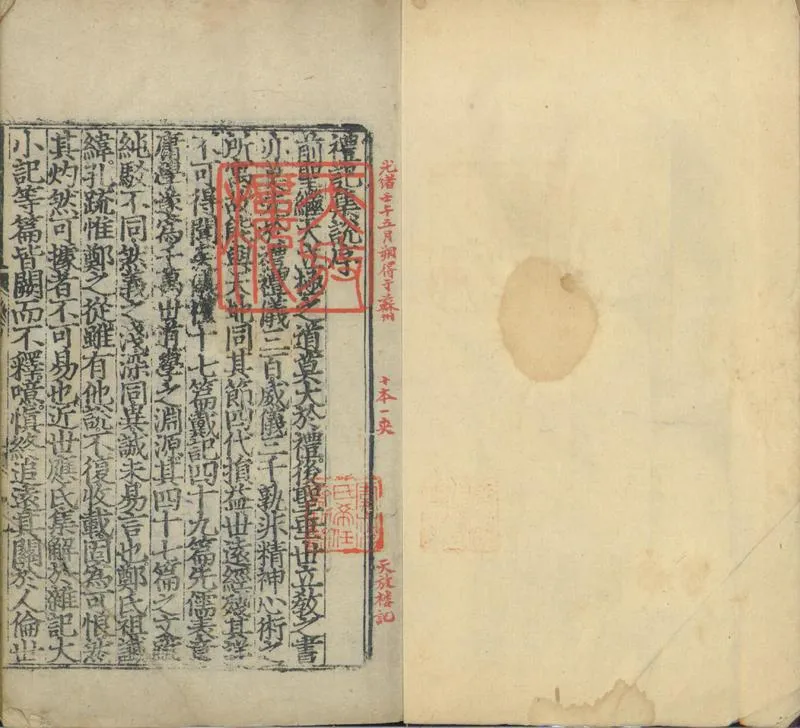 光緒壬午五月朔得于蘇州
十本一夾
天放樓記
禮記集說序
前聖繼天立極之道莫大於禮後聖垂世立教之書
亦莫先於禮禮儀三百威儀三千孰非精神心術之
所寓故能與天地同其節四代損益世遠經殘其詳
不可得聞矣儀禮十七篇戴記四十九篇先儒表章
庸學遂為千萬世道學之淵源其四十七篇之文雖
純駁不同然義之淺深同異誠未易言也鄭氏祖讖
緯孔疏惟鄭之從雖有他說不復收載固為可恨然
其灼然可據者不可易也近世應氏集解於雜記大
小記等篇皆闕而不釋噫慎終追遠其關於人倫世